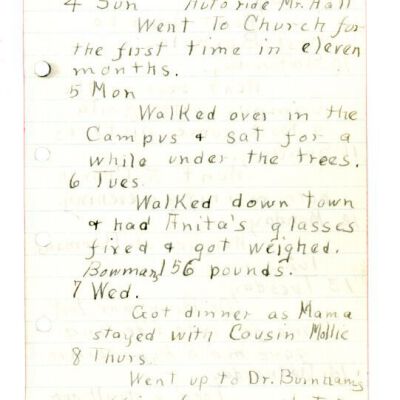 4 Sun Auto ride Mr. Hall
Went To Church for
the first time in eleven
months.
5 Mon
Walked over in the
Campus & sat for a
while under the trees.
6 Tues.
Walked down town
& had Anita's glasses
fixed & got weighed.
Bowman, 156 pounds.
7 Wed.
Got dinner as Mama
stayed with Cousin Mollie
8 Thurs.
Went up to Dr. Burnham's